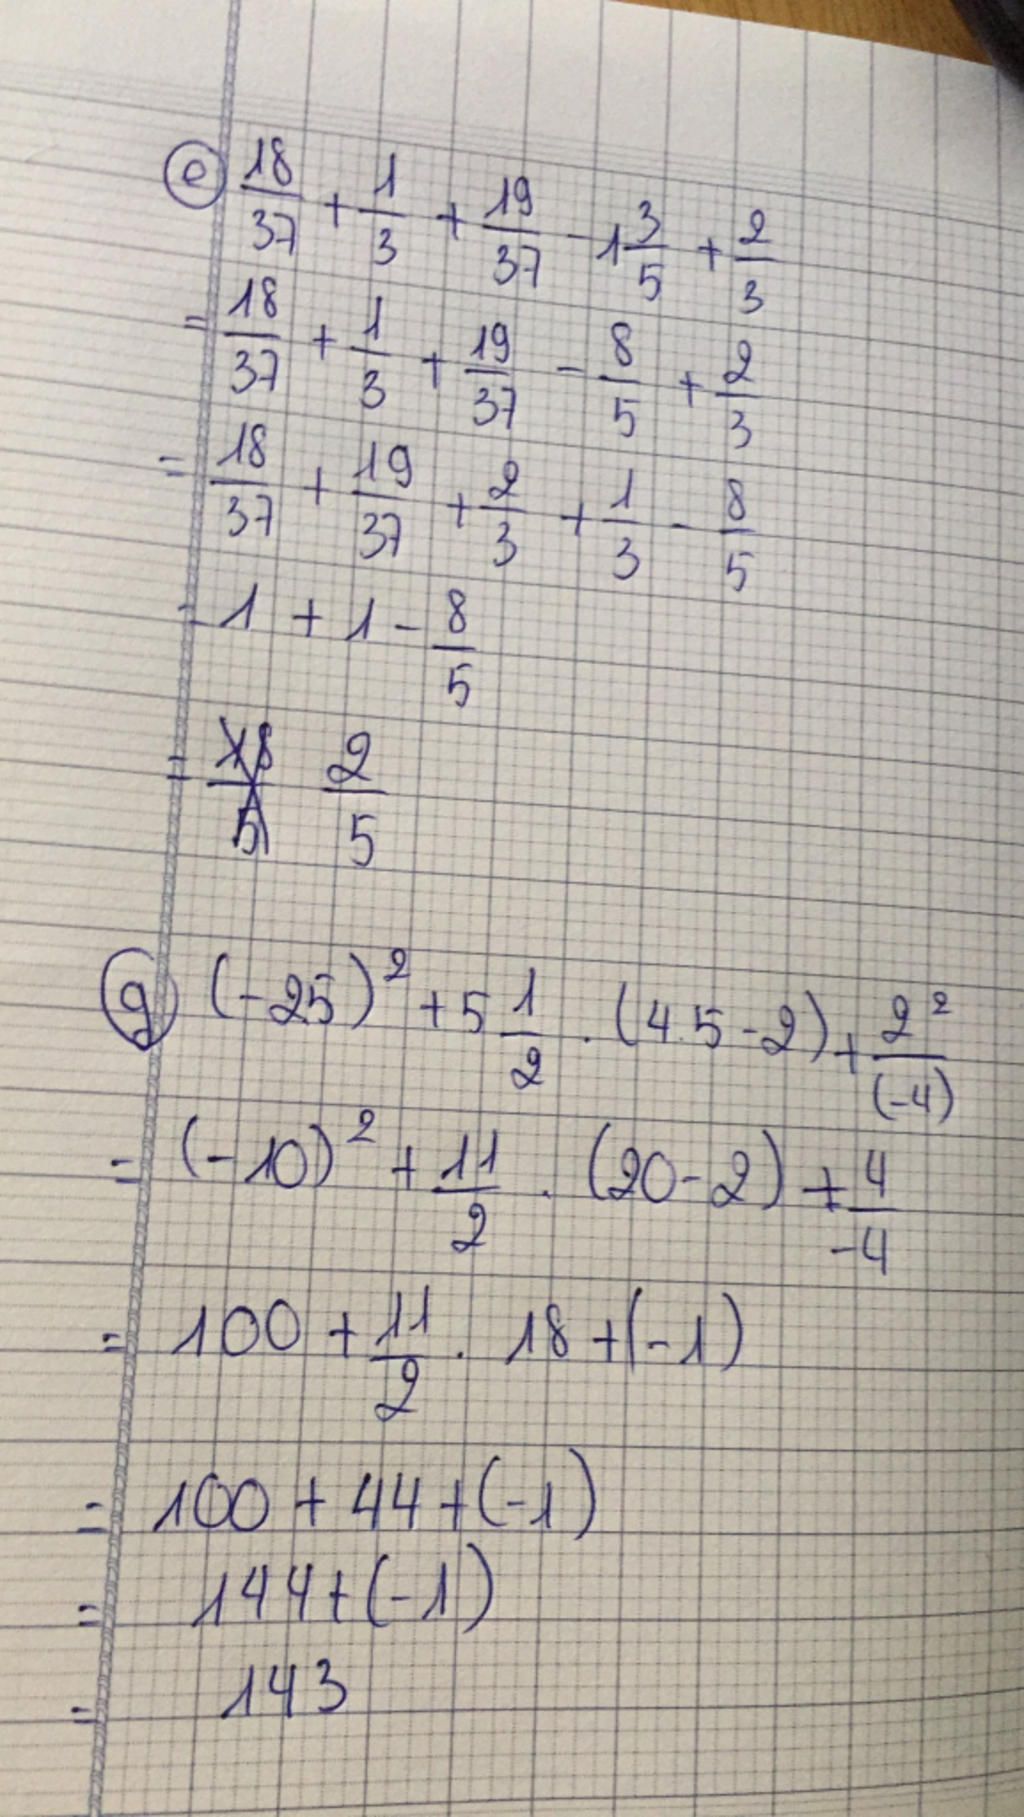 e) 18/37 + 1/3 + 19/37 - 1 3/5 + 2/3
= 18/37 + 1/3 + 19/37 - 8/5 + 2/3
= 18/37 + 19/37 + 2/3 + 1/3 - 8/5
= 1 + 1 - 8/5
= 2/5
g) (-2.5)² + 5 1/2 . (4.5-2) + 2²/(-4)
= (-10)² + 11/2 . (20-2) + 4/-4
= 100 + 11/2 . 18 + (-1)
= 100 + 44 + (-1)
= 144 + (-1)
= 143